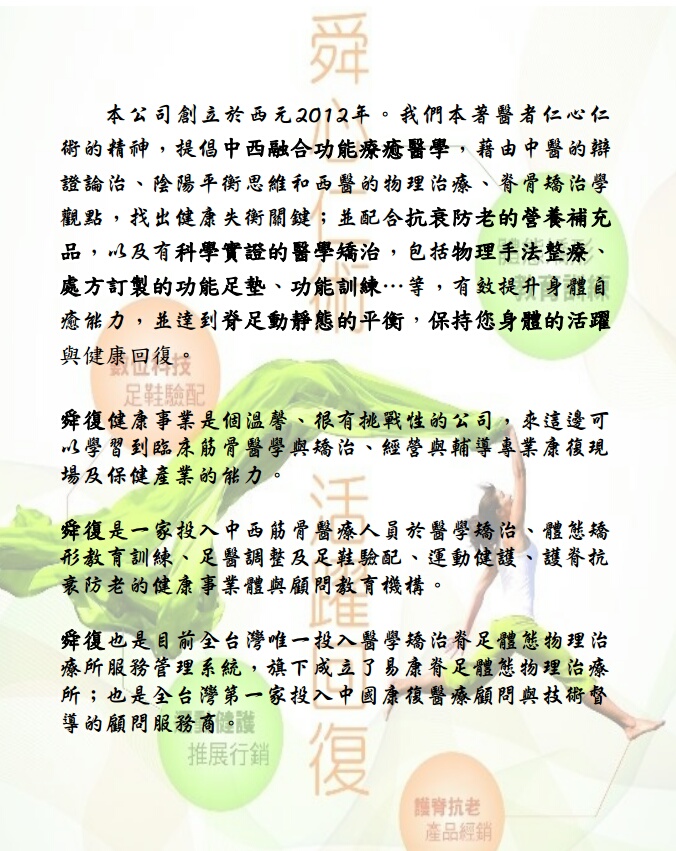 舜心仁術
活躍回復
本公司創立於西元2012年。我們本著醫者仁心仁
術的精神，提倡中西融合功能療癒醫學，藉由中醫的辯
證論治、陰陽平衡思維和西醫的物理治療、脊骨矯治學
觀點，找出健康失衡關鍵；並配合抗衰防老的營養補充
品，以及有科學實證的醫學矯治，包括物理手法整療、
處方訂製的功能足墊、功能訓練…等，有效提升身體自
癒能力，並達到脊足動靜態的平衡，保持您身體的活躍
與健康回復。
體態矯形
教育訓練
數位科技
足鞋驗配
舜復健康事業是個溫馨、很有挑戰性的公司，來這邊可
以學習到臨床筋骨醫學與矯治、經營與輔導專業康復現
場及保健產業的能力。
舜復是一家投入中西筋骨醫療人員於醫學矯治、體態矯
形教育訓練、足醫調整及足鞋驗配、運動健護、護脊抗
衰防老的健康事業體與顧問教育機構。
舜復也是目前全台灣唯一投入醫學矯治脊足體態物理治
療所服務管理系統，旗下成立了易康脊足體態物理治療
所；也是全台灣第一家投入中國康復醫療顧問與技術督
導的顧問服務商。
運動健護
推展行銷
護脊抗老
產品經銷